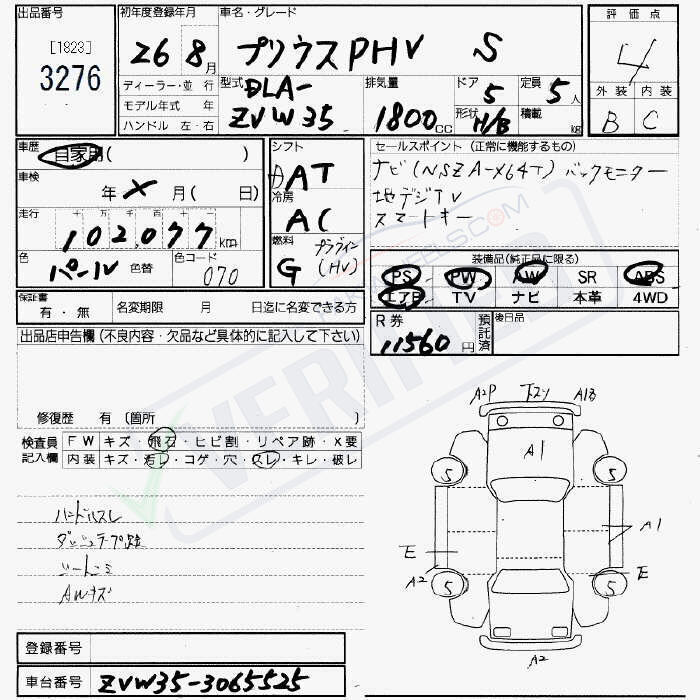 出品番号
[1823]
3276
初年度登録年月
26 8月
車名・グレード
プリウスPHV S
評価点
4
外装 内装
B C
ディーラー・並行
モデル年式 年
ハンドル 左・右
型式
DLA-
ZVW35
排気量
1800cc
ドア
5
形状
H/B
定員
5人
積載
kg
車歴
自家用( )
車検
年 × 月( 日)
走行
十万 万 千 百 十 一
102,077km
色
パール
色替
色コード
070
シフト
AT
冷房
AC
燃料
G
(HV)
セールスポイント (正常に機能するもの)
ナビ(NSZA-X64T) バックモニター
地デジTV
スマートキー
装備品(純正品に限る)
PS PW AW SR ABS
エアB TV ナビ 本革 4WD
保証書
有・無
名変期限 月 日迄に名変できる方
R券
11560円
預託済
後日品
出品店申告欄(不良内容・欠品など具体的に記入して下さい)
修復歴 有 〔箇所 〕
検査員
記入欄
FW キズ・飛石・ヒビ割・リペア跡・X要
内装 キズ・汚レ・コゲ・穴・スレ・キレ・破レ
ハンドルスレ
ダッシュテープ跡
シートシミ
AWキズ
A2P 下スリ A1B
A1
5 5
A1
E
A2
5 5
E
A2
登録番号
車台番号
ZVW35-3065525
VERIFIED